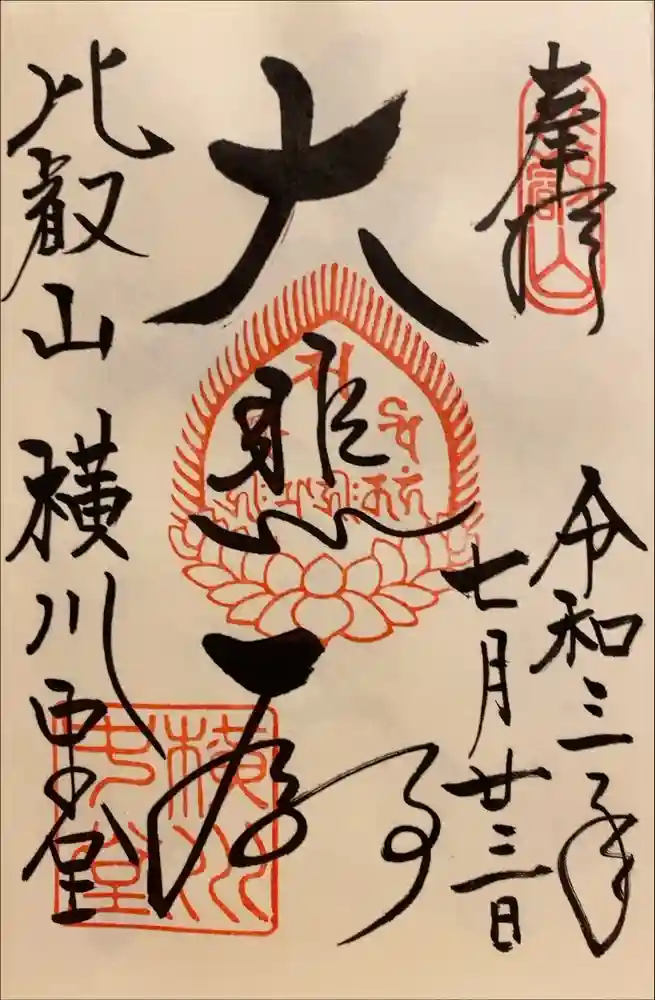 奉拝
令和三年
七月廿三日
大悲殿
比叡山 横川中堂
比叡山
横川中堂